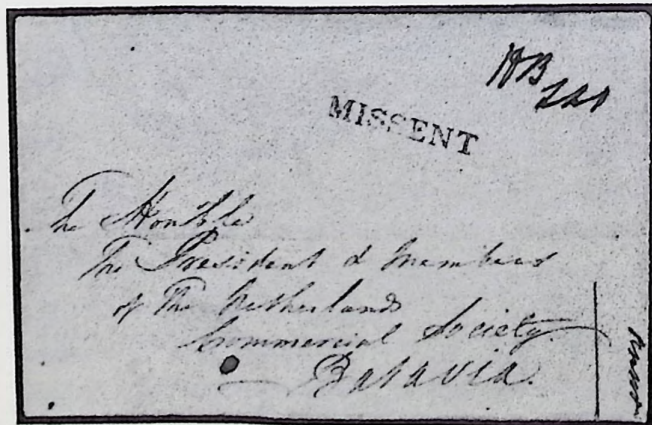 MISSENT
The Hon'ble
The President & Members
of The Netherlands
Commercial Society
Batavia